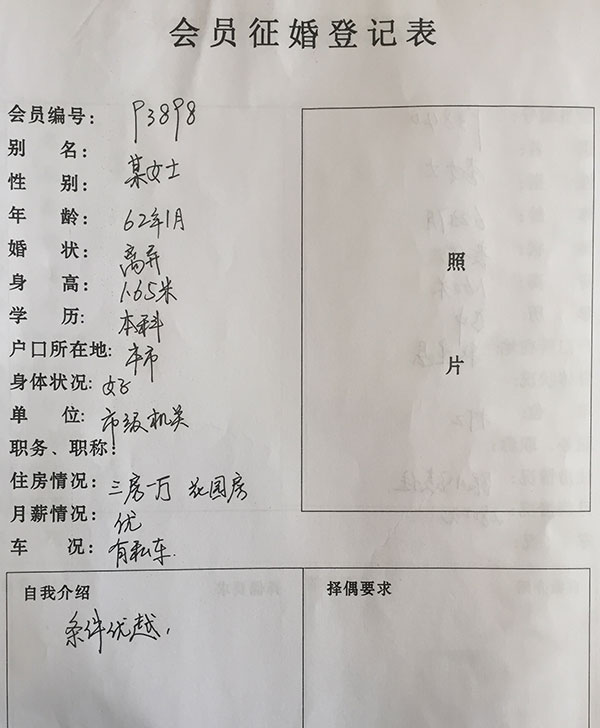 会员征婚登记表
会员编号: P3898
别 名: 某女士
性 别:
年 龄: 62年1月
婚 状: 离异
身 高: 1.65米
学 历: 本科
户口所在地: 本市
身体状况: 好
单 位: 市级机关
职务、职称:
住房情况: 三房一厅 花园房
月薪情况: 优
车 况: 有私车.
照
片
自我介绍
条件优越,
择偶要求